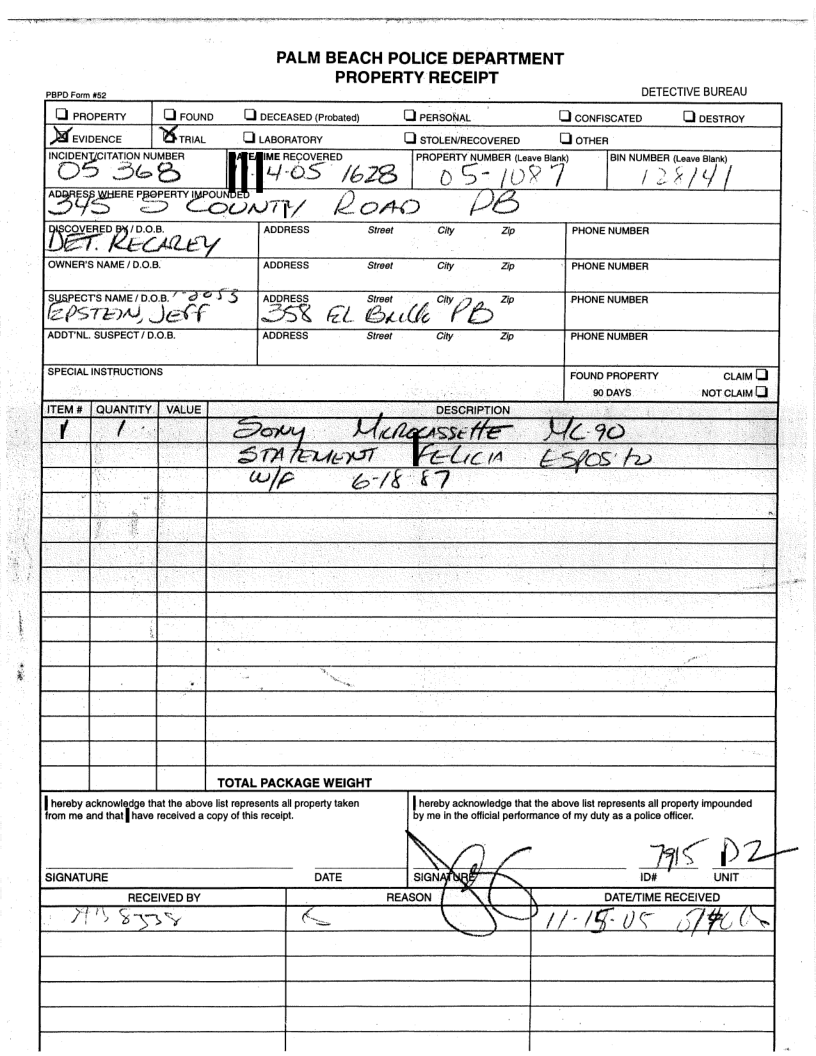 PALM BEACH POLICE DEPARTMENT
PROPERTY RECEIPT
PBPD Form #52
DETECTIVE BUREAU
PROPERTY FOUND DECEASED (Probated) PERSONAL CONFISCATED DESTROY
EVIDENCE TRIAL LABORATORY STOLEN/RECOVERED OTHER
INCIDENT/CITATION NUMBER DATE/TIME RECOVERED PROPERTY NUMBER (Leave Blank) BIN NUMBER (Leave Blank)
05 368 4-05 1628 05-1087 128141
ADDRESS WHERE PROPERTY IMPOUNDED
345 S COUNTY ROAD PB
DISCOVERED BY / D.O.B. ADDRESS Street City Zip PHONE NUMBER
DET. RECAREY
OWNER'S NAME / D.O.B. ADDRESS Street City Zip PHONE NUMBER
SUSPECT'S NAME / D.O.B. ADDRESS Street City Zip PHONE NUMBER
EPSTEIN, JEFF 358 EL Brillo PB
ADDT'NL. SUSPECT / D.O.B. ADDRESS Street City Zip PHONE NUMBER
SPECIAL INSTRUCTIONS FOUND PROPERTY CLAIM
90 DAYS NOT CLAIM
ITEM # QUANTITY VALUE DESCRIPTION
1 1 SONY MICROCASSETTE MC-90
STATEMENT FELICIA ESPOSITO
W/F 6-18 87
TOTAL PACKAGE WEIGHT
hereby acknowledge that the above list represents all property taken
from me and that have received a copy of this receipt.
hereby acknowledge that the above list represents all property impounded
by me in the official performance of my duty as a police officer.
7915 D2
SIGNATURE DATE SIGNATURE ID# UNIT
RECEIVED BY REASON DATE/TIME RECEIVED
8338 11-15-05